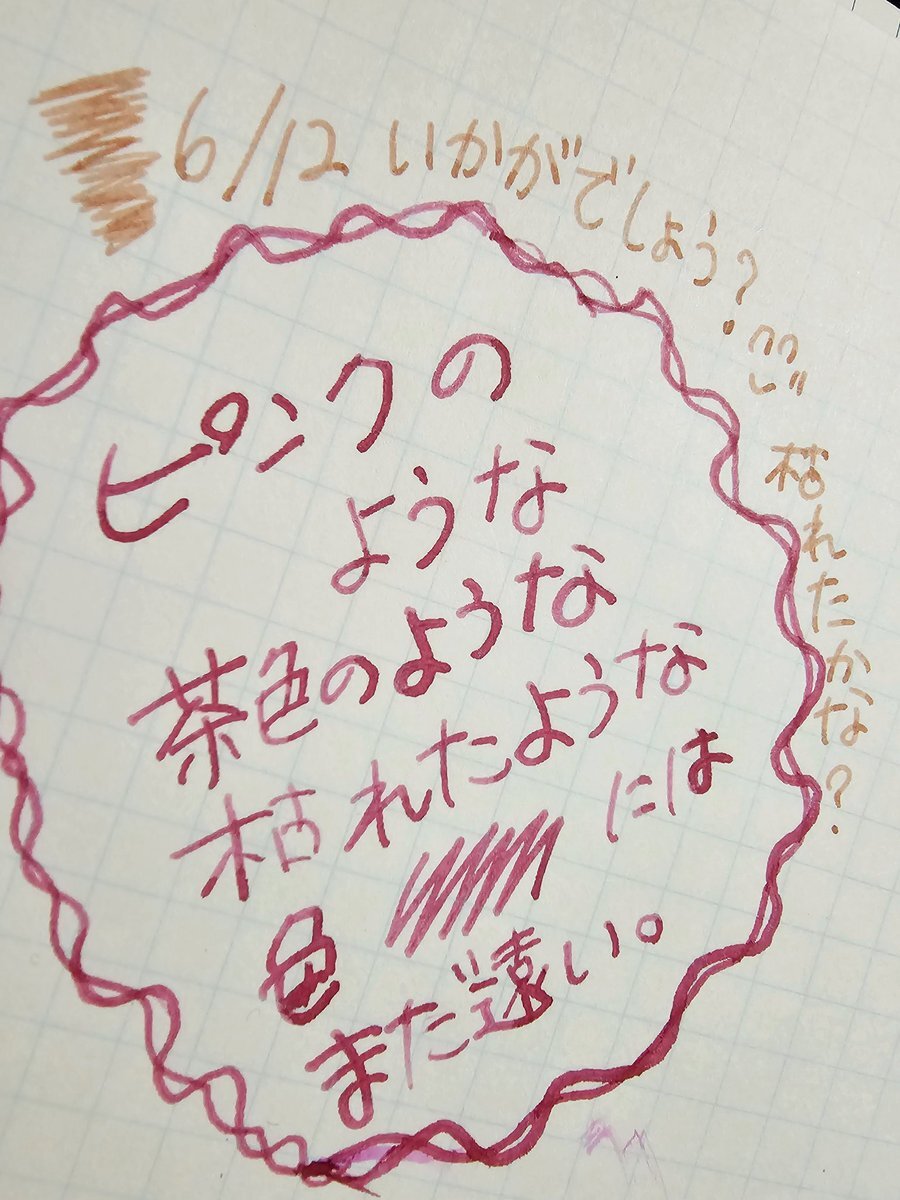 6/12 いかがでしょう?
枯れたかな?
ピンクの
ような
茶色のような
枯れたような
色 には
まだ遠い。